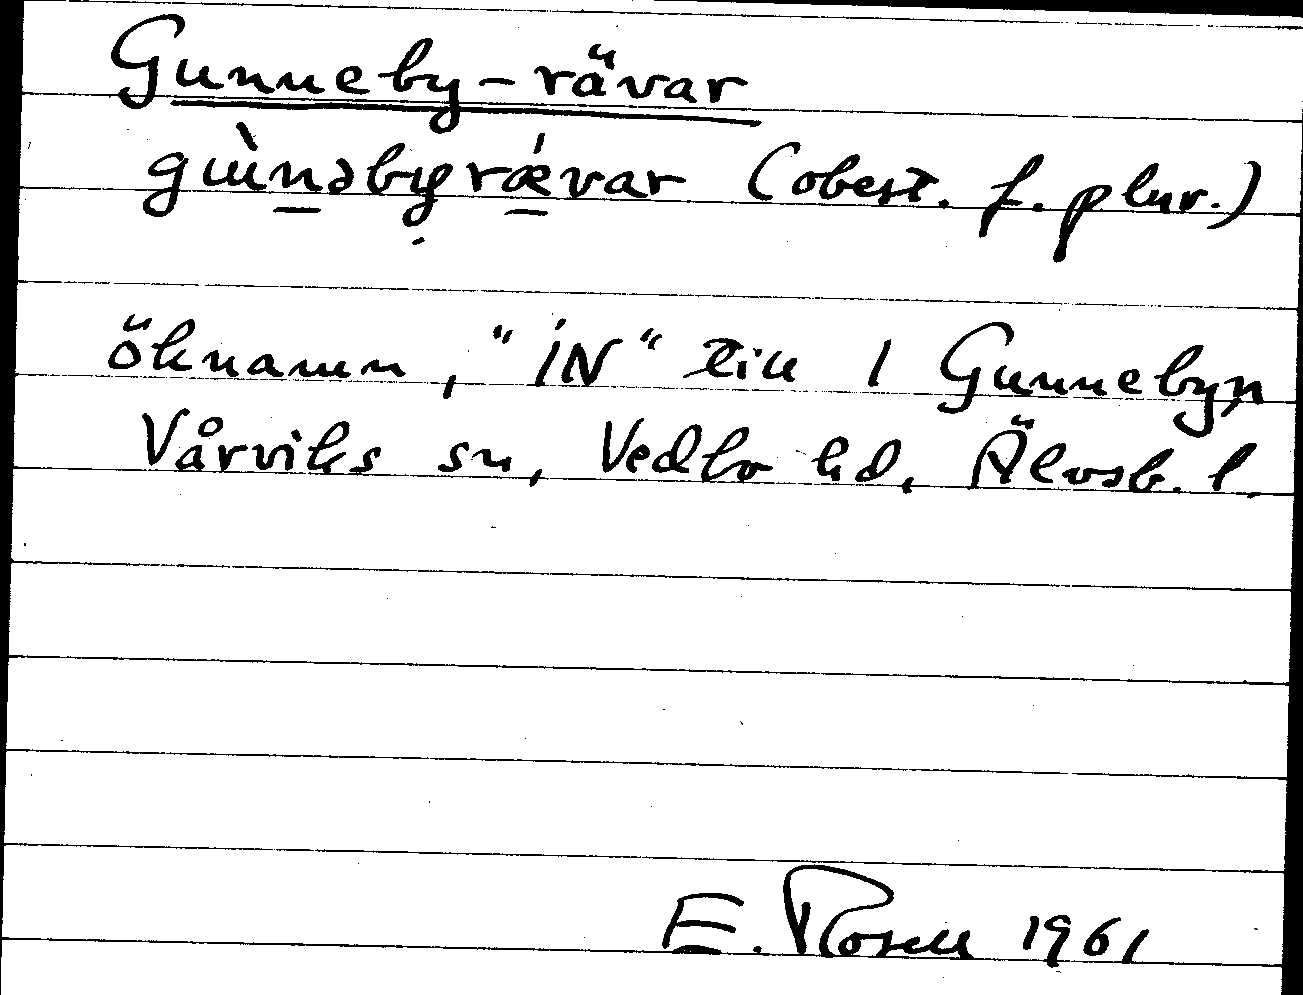 Gunneby-rävar
gɯ̀nəbyrǽvar (obest. f. plur.)
öknamn, "IN" till 1 Gunnebyn
Vårviks sn, Vedbo hd, Älvsb. l.
E. Rosell 1961